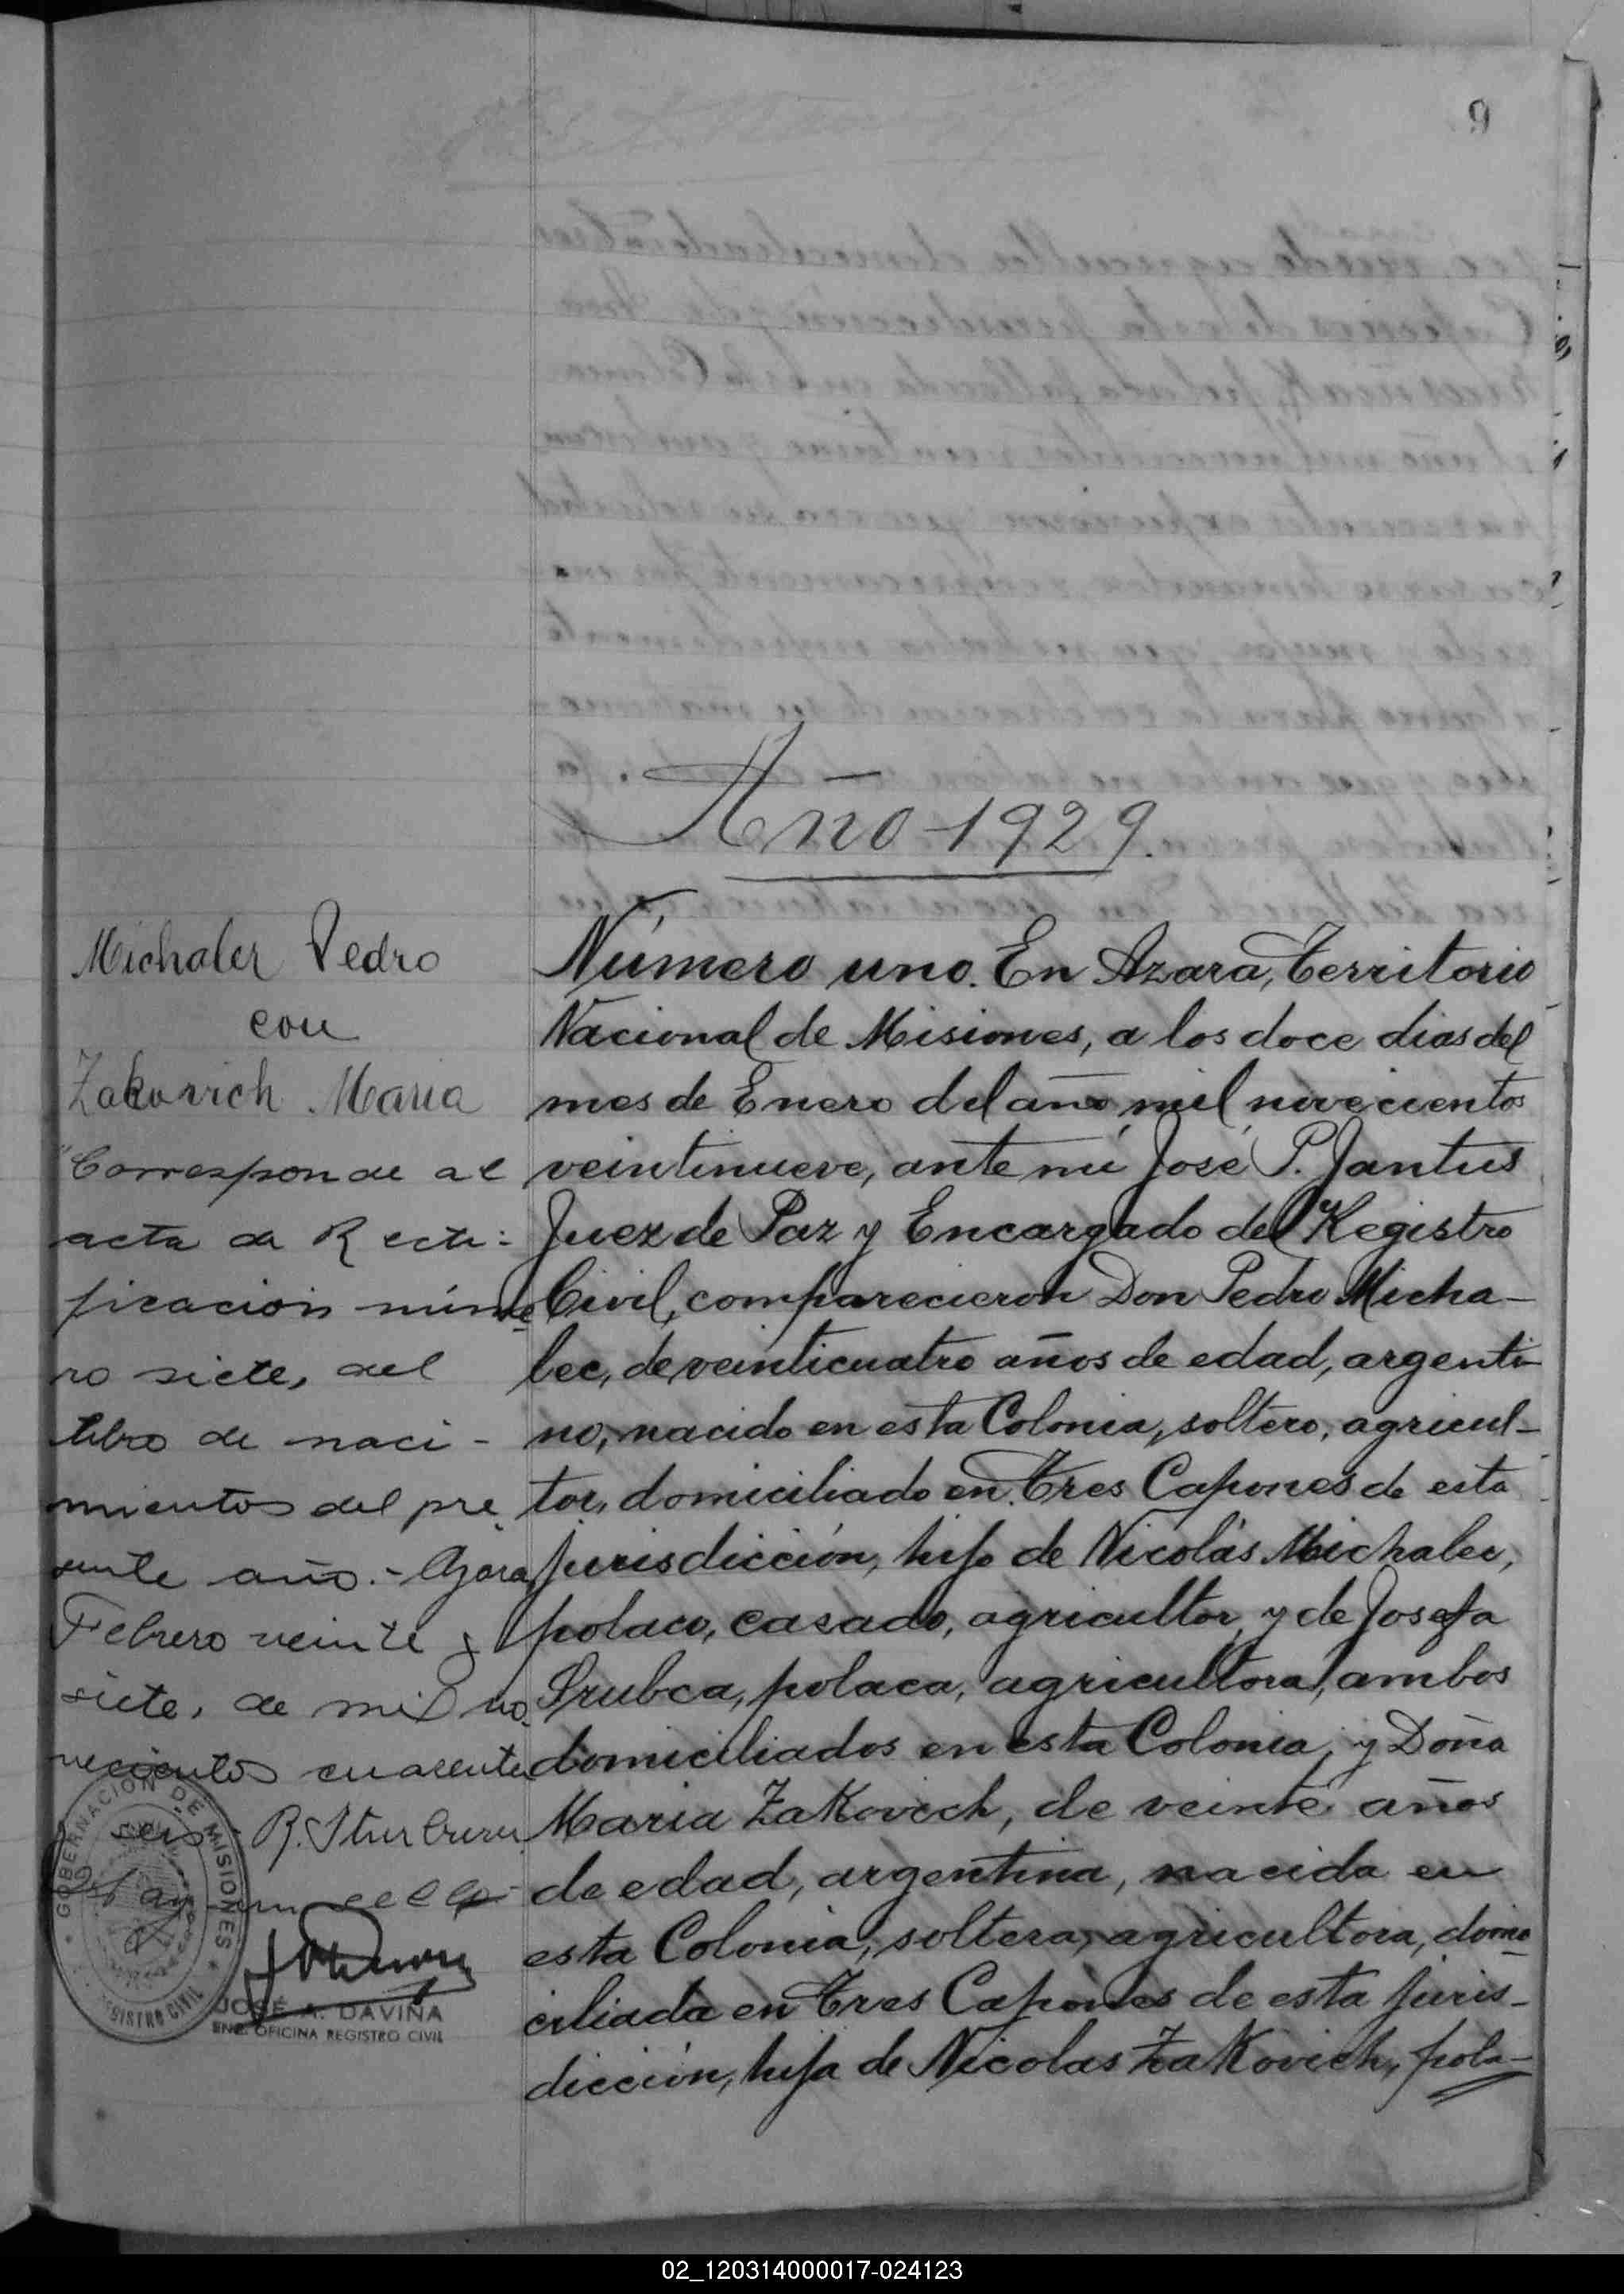 9
Año 1929.
Michalec Pedro
con
Zakovich Maria
"Corresponde al
acta de Recti-
ficacion núme
ro siete, del
libro de naci-
mientos del pre
sente año.- Azara
Febrero veinte y
siete, de mil no
vecientos cuarenta
seis - R.
GOBERNACION DE MISIONES
REGISTRO CIVIL
JOSÉ A. DAVIÑA
ENC. OFICINA REGISTRO CIVIL
Número uno. En Azara, Territorio
Nacional de Misiones, a los doce dias del
mes de Enero del año mil novecientos
veintinueve, ante mí José P. Jantus
Juez de Paz y Encargado del Registro
Civil, comparecieron Don Pedro Micha-
lec, de veinticuatro años de edad, argenti-
no, nacido en esta Colonia, soltero, agricul-
tor, domiciliado en Tres Capones de esta
jurisdicción, hijo de Nicolás Michalec,
polaco, casado, agricultor, y de Josefa
Srubca, polaca, agricultora, ambos
domiciliados en esta Colonia, y Doña
Maria Zakovich, de veinte años
de edad, argentina, nacida en
esta Colonia, soltera, agricultora, domi-
ciliada en Tres Capones de esta juris-
dicción, hija de Nicolas Zakovich, pola-
02_120314000017-024123